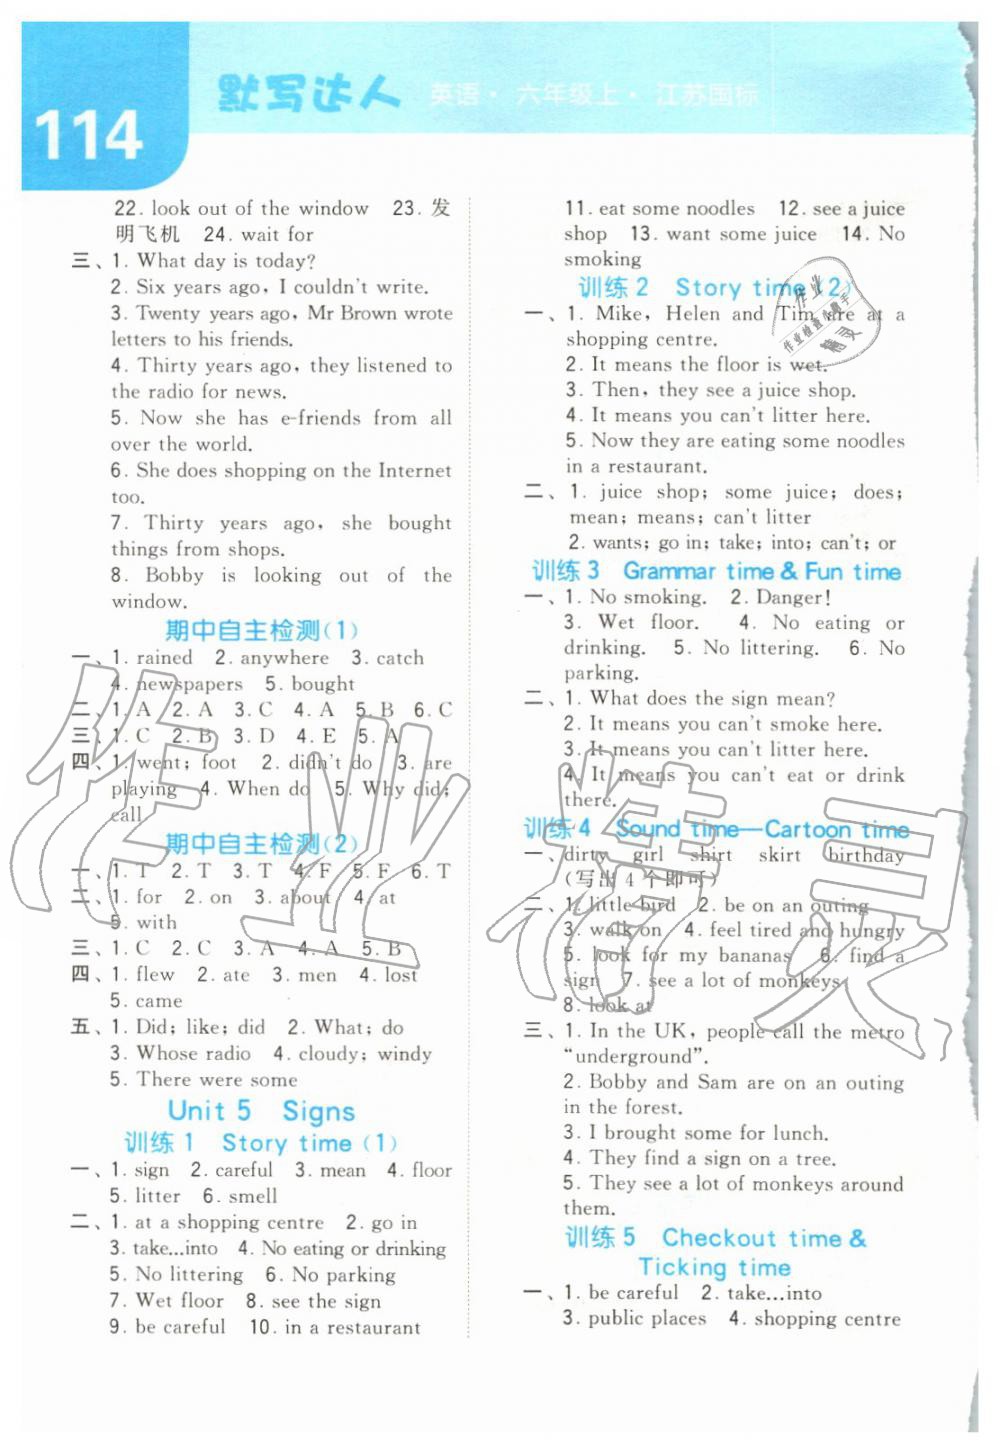 114
默写达人 英语·六年级上·江苏国标
22. look out of the window 23. 发
明飞机 24. wait for
三、1. What day is today?
2. Six years ago, I couldn't write.
3. Twenty years ago, Mr Brown wrote
letters to his friends.
4. Thirty years ago, they listened to
the radio for news.
5. Now she has e-friends from all
over the world.
6. She does shopping on the Internet
too.
7. Thirty years ago, she bought
things from shops.
8. Bobby is looking out of the
window.
期中自主检测(1)
一、1. rained 2. anywhere 3. catch
4. newspapers 5. bought
二、1. A 2. A 3. C 4. A 5. B 6. C
三、1. C 2. B 3. D 4. E 5. A
四、1. went; foot 2. didn't do 3. are
playing 4. When do 5. Why did;
call
期中自主检测(2)
一、1. T 2. T 3. T 4. F 5. F 6. T
二、1. for 2. on 3. about 4. at
5. with
三、1. C 2. C 3. A 4. A 5. B
四、1. flew 2. ate 3. men 4. lost
5. came
五、1. Did; like; did 2. What; do
3. Whose radio 4. cloudy; windy
5. There were some
Unit 5 Signs
训练1 Story time (1)
一、1. sign 2. careful 3. mean 4. floor
5. litter 6. smell
二、1. at a shopping centre 2. go in
3. take...into 4. No eating or drinking
5. No littering 6. No parking
7. Wet floor 8. see the sign
9. be careful 10. in a restaurant
11. eat some noodles 12. see a juice
shop 13. want some juice 14. No
smoking
训练2 Story time (2)
一、1. Mike, Helen and Tim are at a
shopping centre.
2. It means the floor is wet.
3. Then, they see a juice shop.
4. It means you can't litter here.
5. Now they are eating some noodles
in a restaurant.
二、1. juice shop; some juice; does;
mean; means; can't litter
2. wants; go in; take; into; can't; or
训练3 Grammar time & Fun time
一、1. No smoking. 2. Danger!
3. Wet floor. 4. No eating or
drinking. 5. No littering. 6. No
parking.
二、1. What does the sign mean?
2. It means you can't smoke here.
3. It means you can't litter here.
4. It means you can't eat or drink
there.
训练4 Sound time—Cartoon time
一、dirty girl shirt skirt birthday
(写出4个即可)
二、1. little bird 2. be on an outing
3. walk on 4. feel tired and hungry
5. look for my bananas 6. find a
sign 7. see a lot of monkeys
8. look at
三、1. In the UK, people call the metro
“underground”.
2. Bobby and Sam are on an outing
in the forest.
3. I brought some for lunch.
4. They find a sign on a tree.
5. They see a lot of monkeys around
them.
训练5 Checkout time &
Ticking time
一、1. be careful 2. take...into
3. public places 4. shopping centre
作业
作业检查小帮手
精灵
作业精灵